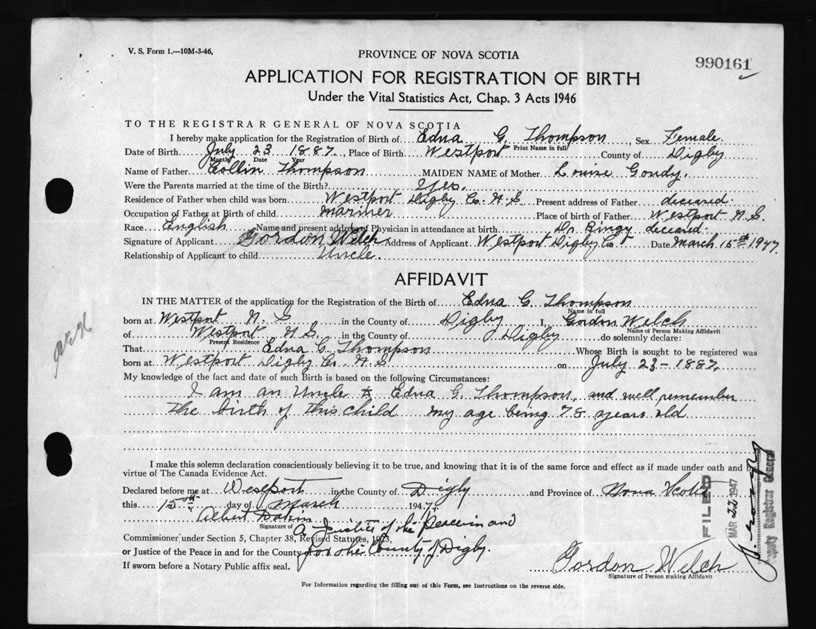 V. S. Form 1.—10M-3-46,
PROVINCE OF NOVA SCOTIA
990161
APPLICATION FOR REGISTRATION OF BIRTH
Under the Vital Statistics Act, Chap. 3 Acts 1946
TO THE REGISTRAR GENERAL OF NOVA SCOTIA
I hereby make application for the Registration of Birth of Edna G. Thompson, Sex Female
Print Name in full
Date of Birth July 23 1887, Place of Birth Westport County of Digby
Month Date Year
Name of Father Collin Thompson MAIDEN NAME of Mother Louise Gondy.
Were the Parents married at the time of the Birth? Yes.
Residence of Father when child was born Westport Digby Co. N.S Present address of Father deceased.
Occupation of Father at Birth of child mariner Place of birth of Father Westport N.S.
Race English Name and present address of Physician in attendance at birth Dr. Bingy deceased.
Signature of Applicant Gordon Welch Address of Applicant Westport Digby Co Date March 15th 1947.
Relationship of Applicant to child Uncle.
AFFIDAVIT
IN THE MATTER of the application for the Registration of the Birth of Edna G. Thompson
Name in full
born at Westport N. S in the County of Digby I, Gordon Welch
Name of Person Making Affidavit
of Westport N.S. in the County of Digby do solemnly declare:
Present Residence
That Edna G. Thompson Whose Birth is sought to be registered was
born at Westport Digby Co. N.S on July 23-1887.
My knowledge of the fact and date of such Birth is based on the following Circumstances:
I am an Uncle to Edna G. Thompson, and well remember
the birth of this child my age being 78 years old
I make this solemn declaration conscientiously believing it to be true, and knowing that it is of the same force and effect as if made under oath and
virtue of The Canada Evidence Act.
Declared before me at Westport in the County of Digby and Province of Nova Scotia
this 15th day of March 1947.
Albert
Signature of
A Justice of the Peace in and
Commissioner under Section 5, Chapter 38, Revised Statutes, 1923,
or Justice of the Peace in and for the County for the County of Digby.
If sworn before a Notary Public affix seal.
Gordon Welch
Signature of Person making Affidavit
For Information regarding the filling out of this Form, see Instructions on the reverse side.
FILED
MAR 22 1947
Deputy Registrar General